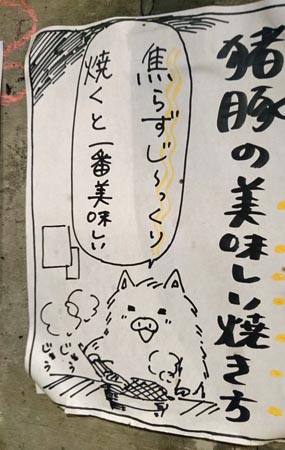 猪豚の美味しい焼き方
焦らずじ〜っくり
焼くと一番美味しい
じゅう
じゅう